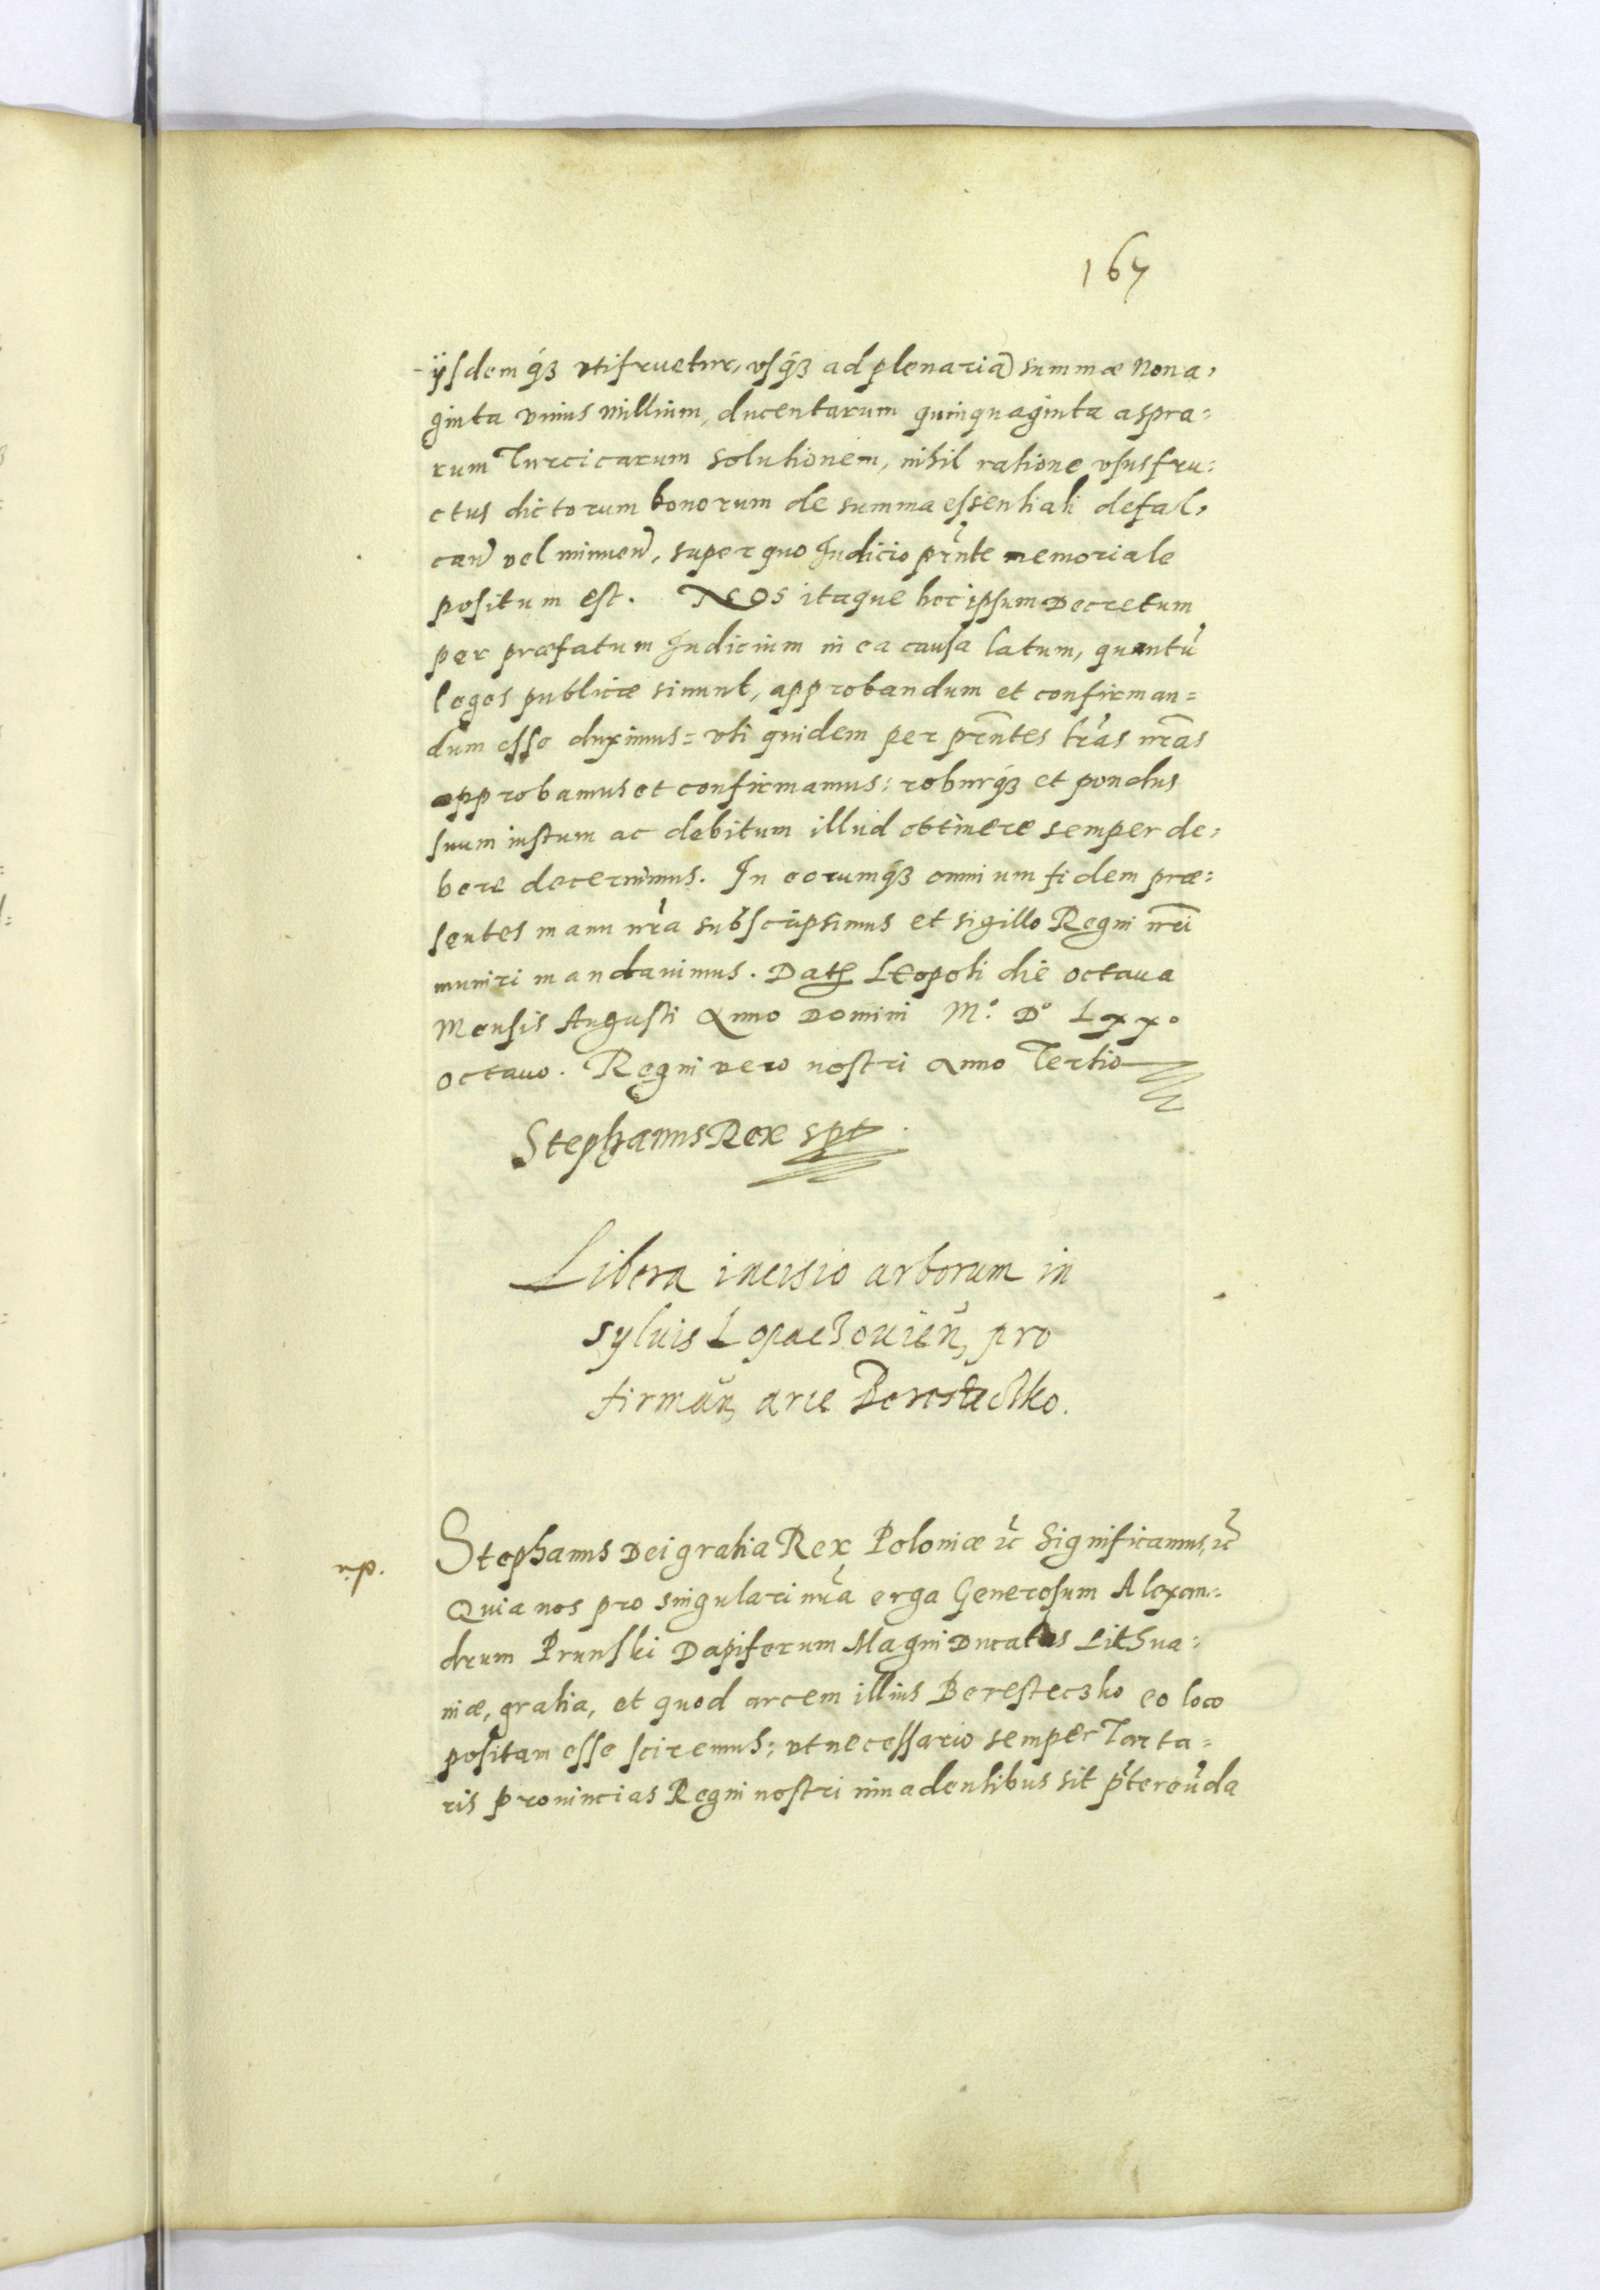 167
ijsdemq́ꝫ vtifruetur, vsq́ꝫ ad plenariã summæ Nona,
ginta vnius millium, ducentarum quinquaginta aspra=
rum Turcicarum solutionem, nihil ratione vsusfru=
ctus dictorum bonorum de summa essentiali defal,
cañ vel minueñ, super quo Iudicio prñte memoriale
positum est. Nos itaque hoc ipsum Decretum
per præfatum Iudicium in ea causa latum, quantũ
leges publicæ sinunt, approbandum et confirman=
dum esse duximus= vti quidem per prñtes lr̃as nr̃as
approbamus et confirmamus: roburq́ꝫ et pondus
suum iustum ac debitum illud obtinere semper de,
bere decernimus. In eorumq́ꝫ omnium fidem præ=
sentes manu nr̃a subscripsimus et sigillo Regni nr̃i
muniri mandauimus. Datꝭ Leopoli die octaua
Mensis Augusti Anno Domini M.º Dº Lxxº
octauo. Regni vero nostri Anno Tertio
Stephanus Rex spt
Libera incisio arborum in
syluis Lopaczouieñ, pro
firmañ, arce Beresteczko.
r.p.
Stephanus Dei gratia Rex Poloniæ ũc Significamus, ũc
Quia nos pro singulari nr̃a erga Generosum Alexan=
drum Prunski Dapiferum Magni Ducatus Lithua=
niæ, gratia, et quod arcem illius Beresteczko eo loco
positam esse sciremus; vt necessario semper Tarta=
ris prouincias Regni nostri inuadentibus sit p̃tereũda